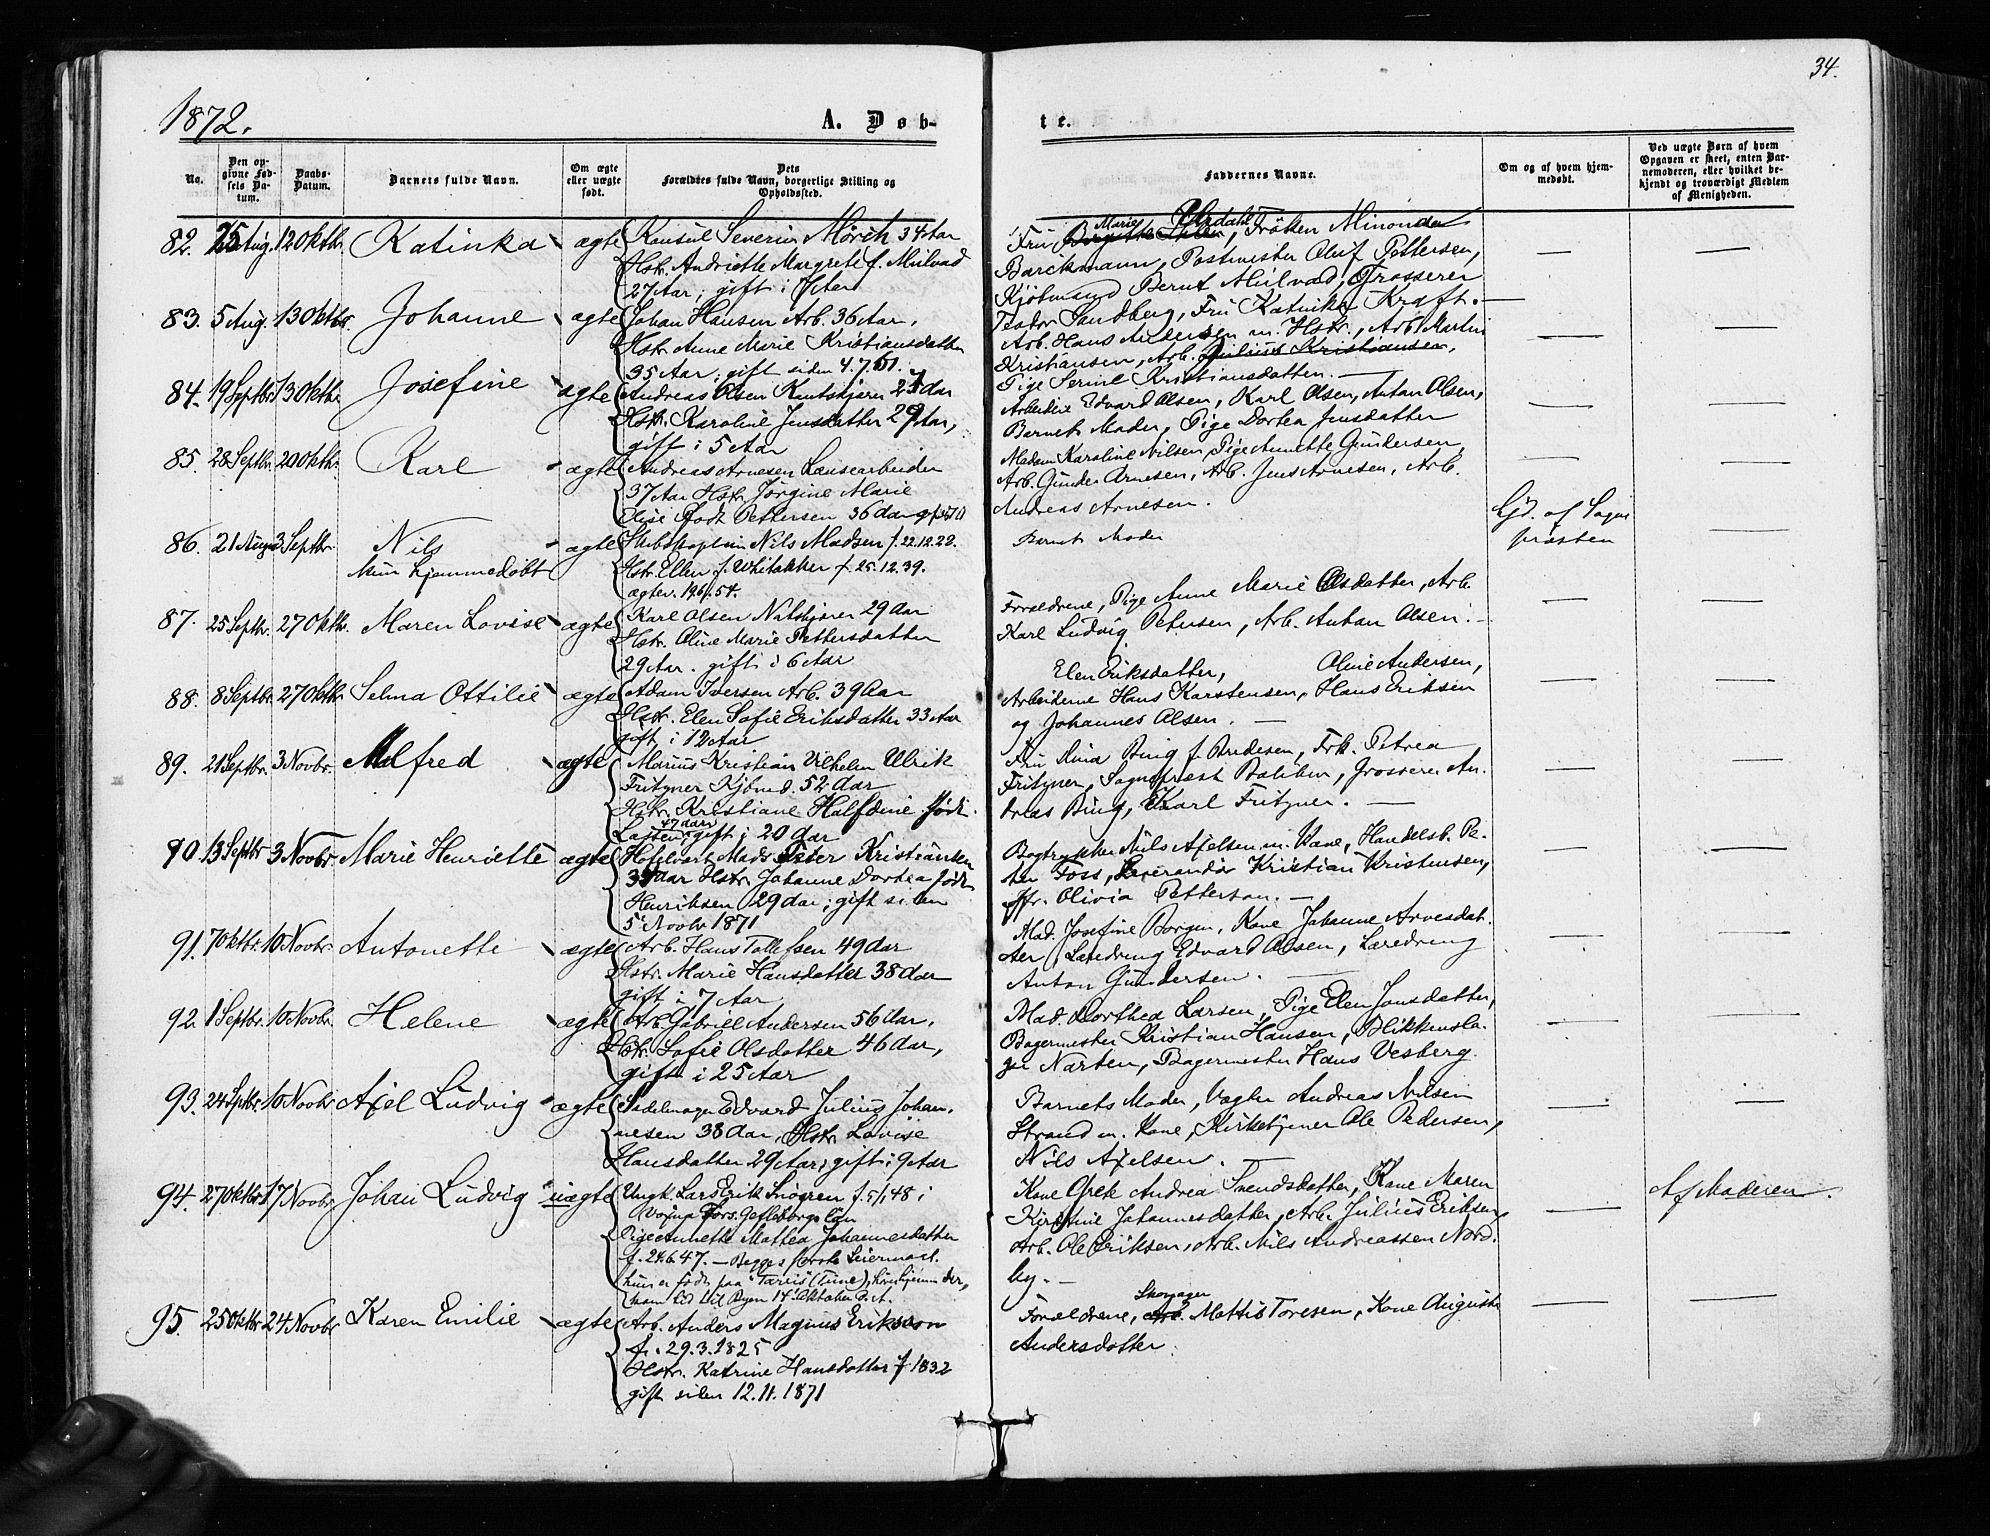 1872.
34.
A. Døb-
te.
No.
Den op-
givne Fød-
sels Da-
tum.
Daabs-
Datum.
Barnets fulde Navn.
Om ægte
eller uægte
født.
Dets
Forældres fulde Navn, borgerlige Stilling og
Opholdssted.
Faddernes Navne.
Om og af hvem hjem-
medøbt.
Ved uægte Børn af hvem
Opgaven er skeet, enten Bar-
nemoderen, eller hvilket be-
kjendt og troværdigt Medlem
af Menigheden.
82. 25 Aug. 12 Oktbr. Katinka ægte
Konsul Severin Mörch 34 Aar
Hstr. Andriette Margrete f. Mulvad
27 Aar; gift i 7 Aar
Fru Marie Frøken
Barckmann, Postmester Oluf Pettersen,
Kjøbmand Bernt Mulvad, Grosserer
Teodor Sandberg, Fru Katinka Kraft. —
83. 5 Aug. 13 Oktbr. Johanne ægte
Johan Hansen Arb. 36 Aar,
Hstr. Anne Marie Kristiansdatter
35 Aar; gift siden 4.7.61.
Arb. Hans Andersen m. Hstr., Arb. Martin
Kristiansen, Arb. Julius Kristiansen,
Pige Serine Kristiansdatter. —
84. 19 Septbr. 13 Oktbr. Josefine ægte
Andreas Olsen 25 Aar
Hstr. Karoline Jensdatter 29 Aar,
gift i 5 Aar
Arbeidere Edvard Olsen, Karl Olsen, Anton Olsen,
Barnets Moder, Pige Dortea Jensdatter
85. 28 Septbr. 20 Oktbr. Karl ægte
Andreas Arnesen Lænsearbeider
37 Aar Hstr. Jørgine Marie
Elise født Pettersen 36 Aar
Madam Karoline Nilsen, Pige Annette Gundersen,
Arb. Gunder Arnesen, Arb. Jens Arnesen, Arb.
Andreas Arnesen.
86. 21 Aug. 3 Septbr. Nils
kun hjemmedøbt ægte
Skibskaptein Nils Madsen f. 22.12.22.
Hstr. Ellen f. Whitakker f. 25.12.39.
Barnets Moder
Hjd. af Sogne
præsten
87. 25 Septbr. 27 Oktbr. Maren Lovise ægte
Karl Olsen 29 Aar
Hstr. Oline Marie Pettersdatter
29 Aar. gift i 6 Aar
Forældrene, Pige Anne Marie Olsdatter, Arb.
Karl Ludvig Petersen, Arb. Anton Olsen. —
88. 8 Septbr. 27 Oktbr. Selma Ottilie ægte
Adam Iversen Arb. 39 Aar
Hstr. Elen Sofie Eriksdatter 33 Aar
gift i 12 Aar
Elen Eriksdatter, Oline Andersen,
Arbeiderne Hans Karstensen, Hans Eriksen
og Johannes Olsen. —
89. 21 Septbr. 3 Novbr. Alfred ægte
Marius Kristian Vilhelm Ulrik
Fritzner Kjøbmd. 52 Aar
Hstr. Kristiane Halfdine født
47 Aar
Lassen; gift i 20 Aar
Fru Bing f. Bredesen, Frk. Petrea
Fritzner, Sognepræst Grosserer An-
dreas Bing, Karl Fritzner. —
90. 13 Septbr. 3 Novbr. Marie Henriette ægte
Hotelvært Mads Peter Kristiansen
Aar Hstr. Johanne Dortea født
Henriksen 29 Aar; gift siden
5 Novbr 1871
Bogtrykker Nils Axelsen m. Kone, Handelsb. Pe-
ter Foss, Leverandør Kristian Kristensen,
Jfr. Olivia Petterson. —
91. 7 Oktbr. 10 Novbr. Antonette ægte
Arb. Hans Tollefsen 49 Aar
Hstr. Marie Hansdatter 38 Aar
gift i 7 Aar
Mad. Josefine Borgen, Kone Johanne Arnesdat-
ter, Læredreng Edvard Olsen, Læredreng
Anton Gundersen. —
92. 1 Septbr. 10 Novbr. Helene ægte
Arb. Gabriel Andersen 56 Aar,
Hstr. Sofie Olsdatter 46 Aar,
gift i 25 Aar
Mad. Dorthea Larsen, Pige Elen Jonsdatter,
Bagermester Kristian Hansen, Blikkensla-
ger Narten, Bagermester Hans Vesberg.
93. 24 Septbr. 10 Novbr. Axel Ludvig ægte
Sadelmager Edvard Julius Johan-
nesen 38 Aar, Hstr. Lovise
Hansdatter 29 Aar; gift i 9 Aar
Barnets Moder, Vægter Andreas Nilsen
Strand m. Kone, Kirketjener Ole Pedersen,
Nils Axelsen. —
94. 27 Oktbr. 17 Novbr. Johan Ludvig uægte
Ungk. Lars Erik Snögren f. 5/1 48 i
Voxna Fors. Gefleborgs Län
Pige Annette Mattea Johannesdatter
f. 24.6.47. — Begges første Leiermaal.
hun er født paa (Tune), der,
kom hid til Byen 14 Oktober d. A.
Kone Grete Andrea Svendsdatter, Kone Maren
Kirstine Johannesdatter, Arb. Julius Eriksen,
Arb. Ole Eriksen, Arb. Nils Andreassen Nord-
by. —
Af Moderen.
95. 25 Oktbr. 24 Novbr. Karen Emilie ægte
Arb. Anders Magnus Eriksson
f. 29.3.1825
Hstr. Katrine Hansdatter f. 1832
gift siden 12.11.1871
Skomager
Forældrene, Mattis Toresen, Kone Auguste
Andersdatter.